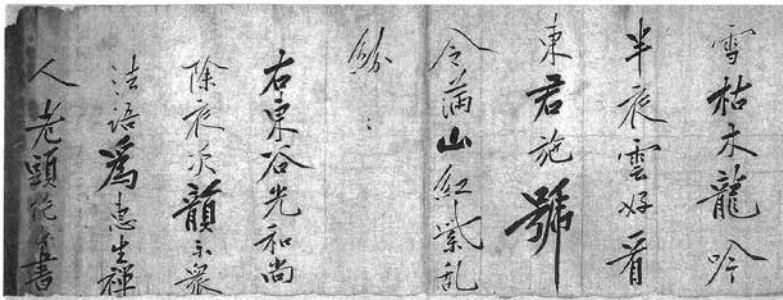 雪枯木龍吟
半夜雲好看
東君施號
令滿山紅紫乱
紛〻
右東谷光和尚
除夜次韻示衆
法語為恵生禅
人老頭陀書